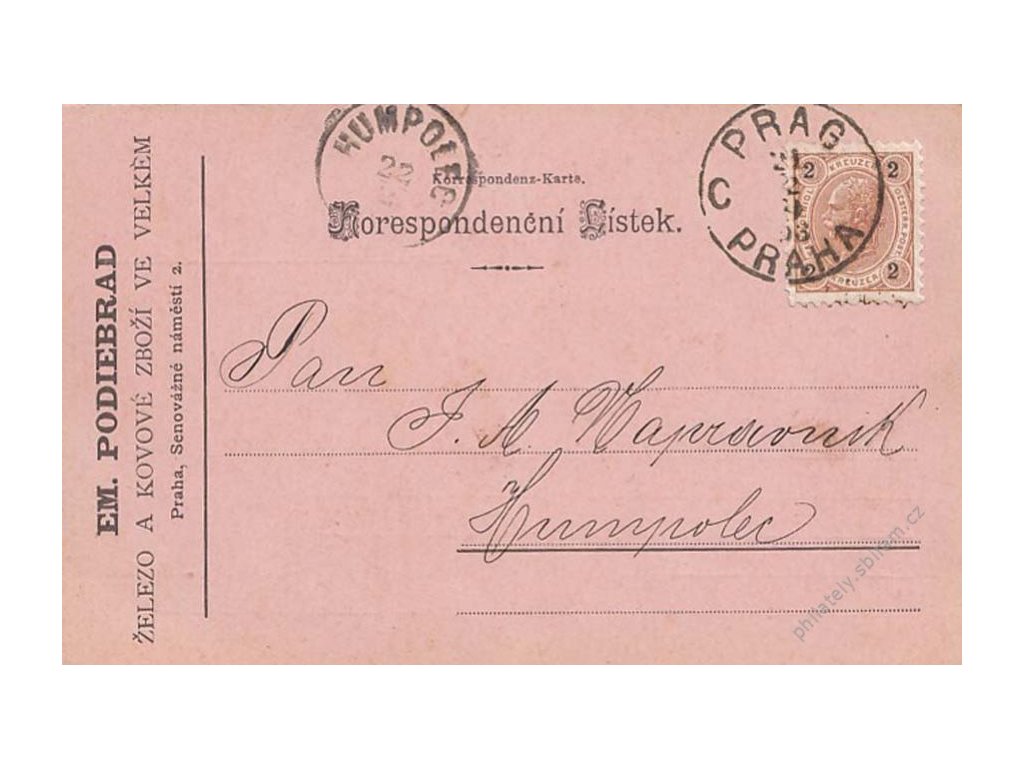 EM. PODIEBRAD
ŽELEZO A KOVOVÉ ZBOŽÍ VE VELKÉM
Praha, Senovážné náměstí 2.
HUMPOLEC
22
Korrespondenz-Karte.
Korespondenční Lístek.
PRAG
C
PRAHA
2 KREUZER 2
OESTERR. POST
2 KREUZER 2
Pan
J. A. Napravnik
Humpolec
philately.sbiram.cz